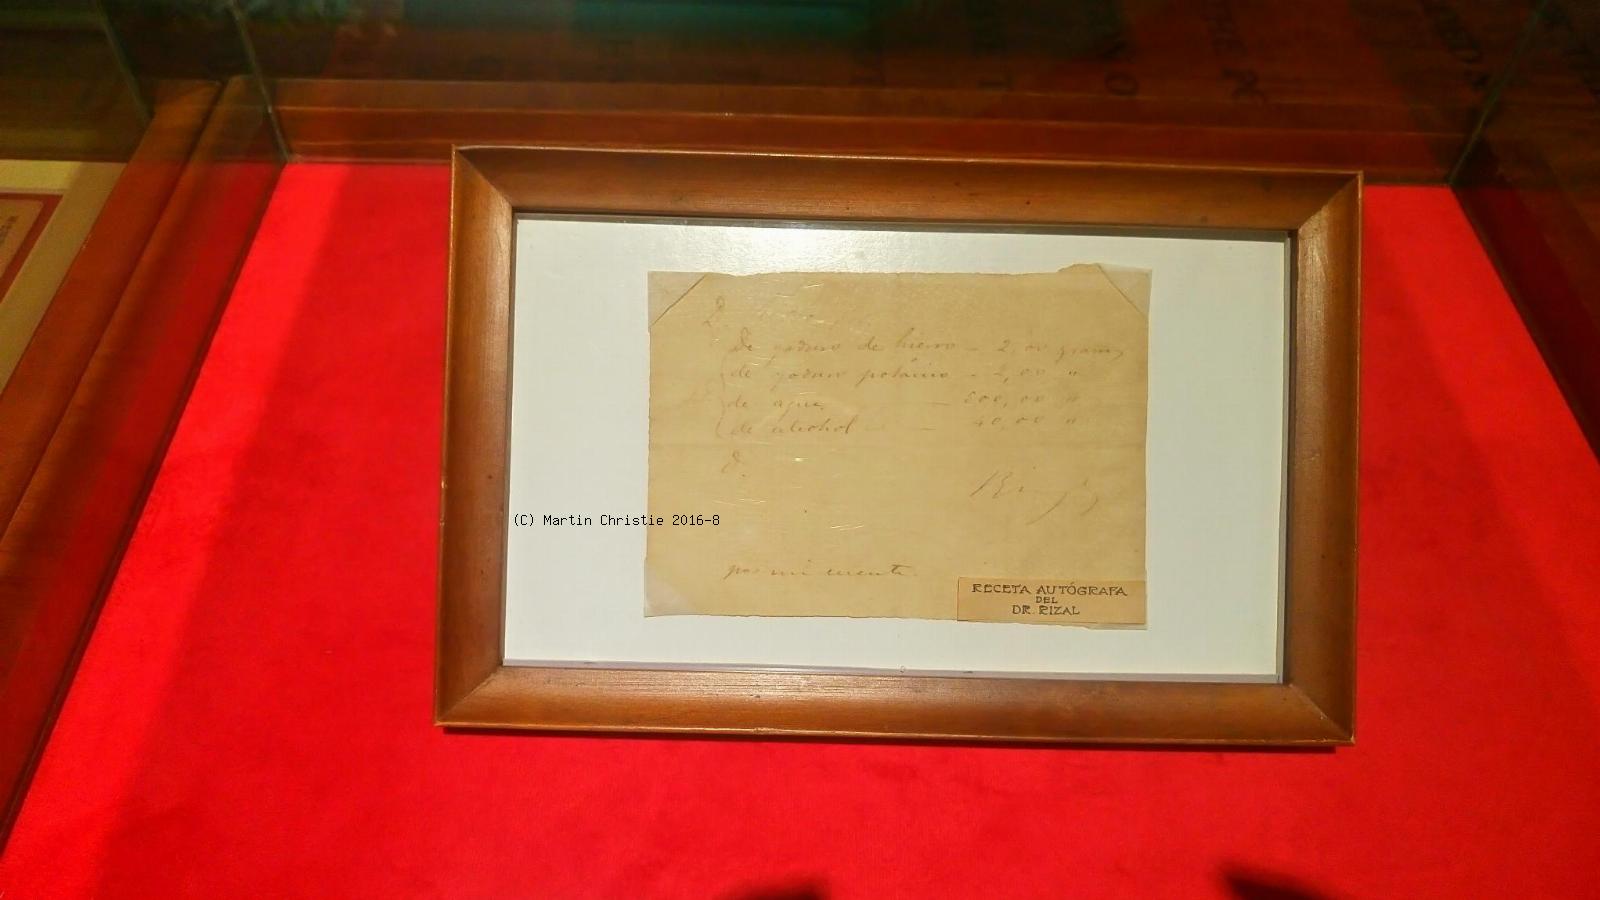 De yoduro de hierro - 2,00 gram
de yoduro potásico - 2,00 "
de agua - 600,00 "
de alcohol - 40,00 "
d.
Rizal
por mi cuenta
RECETA AUTÓGRAFA
DEL
DR. RIZAL
(C) Martin Christie 2016-8